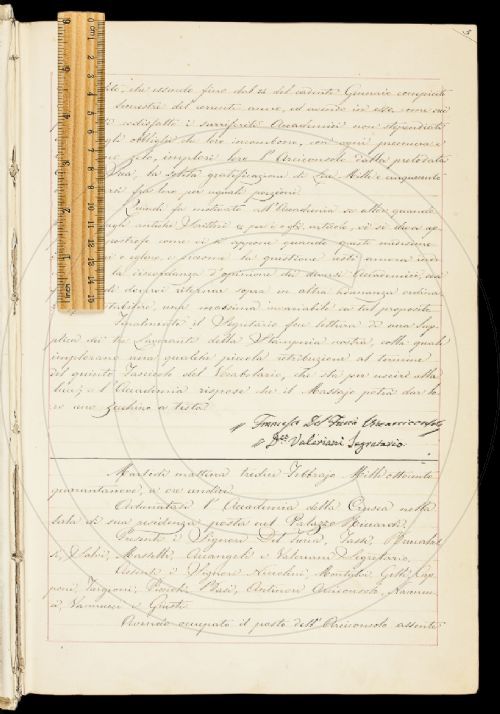 3.
che essendo fino dal 24 del cadente Gennaio compiuto
semestre del corrente anno, ed avendo in esso come
sodisfatti i surriferiti Accademici non stipendiati
obblighi che loro incombono, con ogni premura e
zelo, implori loro l'Arciconsolo dalla prelodata
la solita gratificazione di Lire Mille cinquecento
fra loro per uguali porzioni.
Quindi fu motivato all'Accademia se altre quando
antichi Scrittori e per i egli, articolo, vi si deva
come vi si appone quando questi medesimi
e siccome la questione restò ancora
discordanza d'opinione dei diversi Accademici,
di doversi ritornare sopra in altra Adunanza ordinaria
stabilire una massima invariabile in tal proposito.
Finalmente il Segretario fece lettura di una Sup-
plica dei tre Lavoranti della Stamperia nostra, colla quale
implorano una qualche piccola retribuzione al termine
del quinto Fascicolo del Vocabolario, che sta per uscire alla
luce; e l'Accademia rispose che il Massajo potrà dar lo-
ro uno zecchino a testa.
Francesco Del Furia Vicearciconsolo
Valeriani Segretario.
Martedì mattina tredici Febbrajo Mille ottocento
quarantanove, a ore undici.
Adunatasi l'Accademia della Crusca nella
sala di sua residenza posta nel Palazzo Riccardi;
Presenti i Signori Del Furia, Tassi,
Masselli, Arcangeli e Valeriani Segretario,
Assenti i Signori Niccolini, Montalvi, Gelli, Cap-
poni, Targioni, Basi, Antinori Arciconsolo,
Vannucci e Giusti.
Avendo occupato il posto dell'Arciconsolo assente